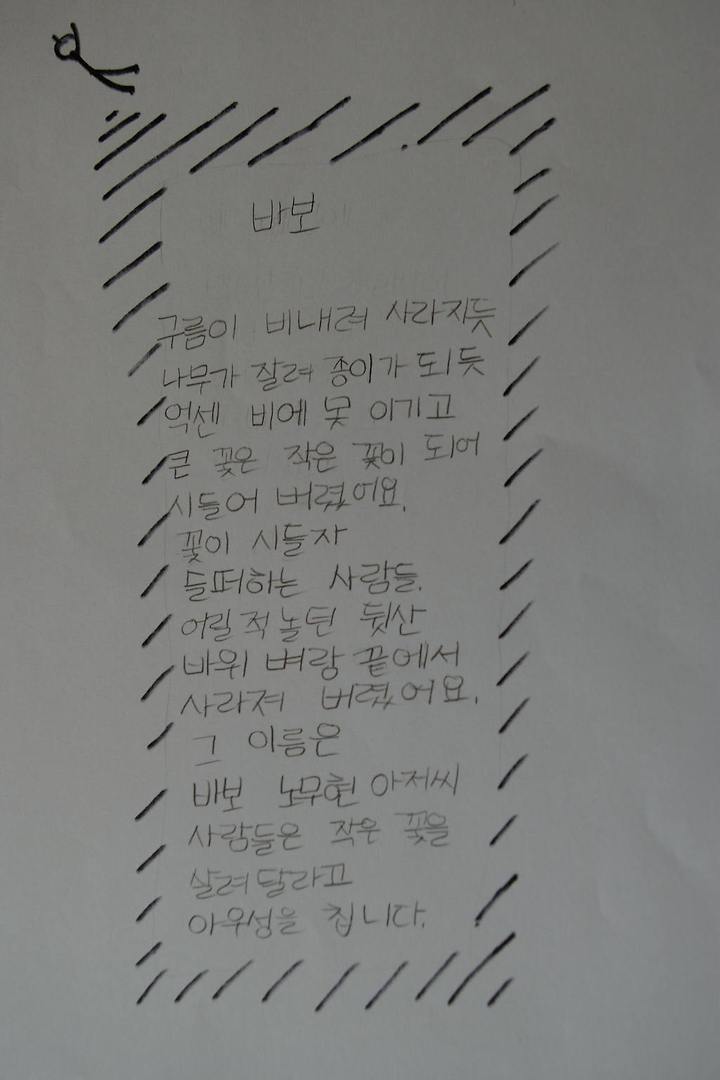 바보
구름이 비내려 사라지듯
나무가 잘려 종이가 되듯
억센 비에 못 이기고
큰 꽃은 작은 꽃이 되어
시들어 버렸어요.
꽃이 시들자
들떠하는 사람들.
어릴적 놀던 뒷산
바위 벼랑 끝에서
사라져 버렸어요.
그 이름은
바보 노무현 아저씨
사람들은 작은 꽃을
살려달라고
아우성을 칩니다.